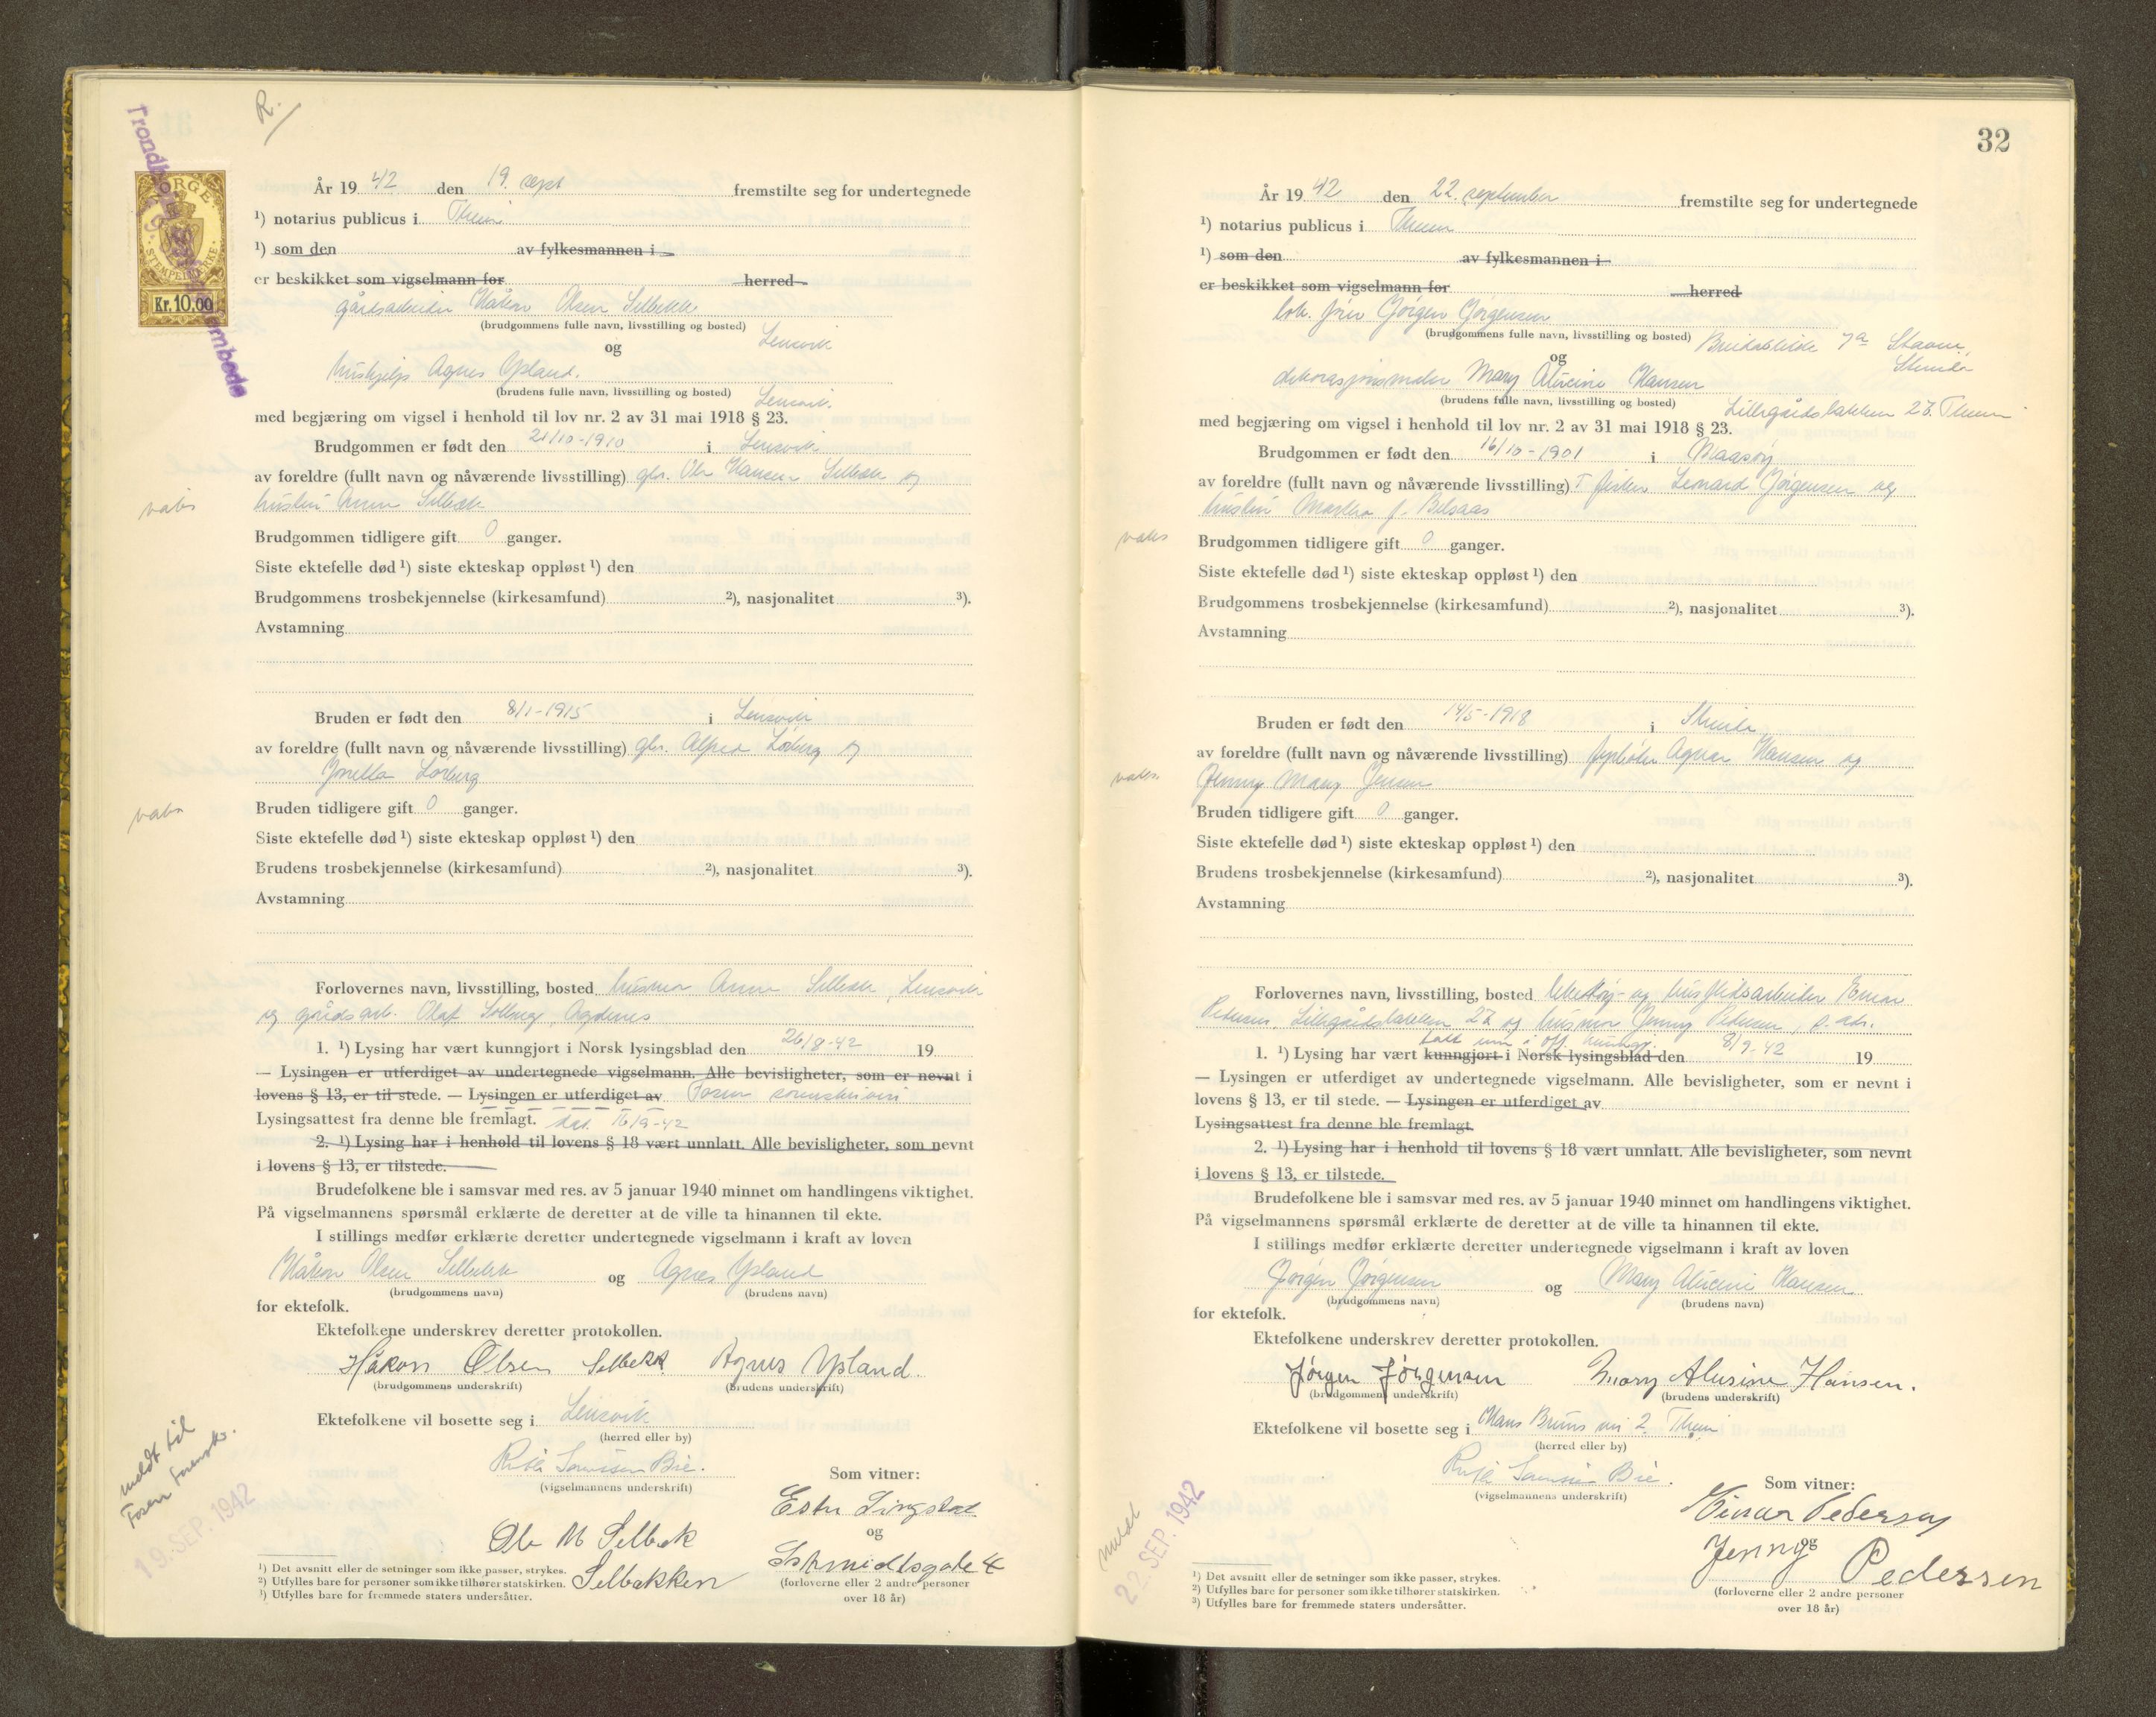 R.
Trondh
NORGE.
STEMPELMERKE
Kr. 10.00
embede
År 19 42 den 19. sept fremstilte seg for undertegnede
¹) notarius publicus i Thrm
¹) som den av fylkesmannen i
er beskikket som vigselmann for herred
gårdsarbeider Håkon Olsen Selbekk
(brudgommens fulle navn, livsstilling og bosted) Lensvik
og
hushjelp Agnes Ysland.
(brudens fulle navn, livsstilling og bosted) Lensvik.
med begjæring om vigsel i henhold til lov nr. 2 av 31 mai 1918 § 23.
Brudgommen er født den 21/10-1910 i Lensvik
av foreldre (fullt navn og nåværende livsstilling) gbr. Ole Hansen Selbekk og
hustru Anna Selbekk
Brudgommen tidligere gift 0 ganger.
Siste ektefelle død ¹) siste ekteskap oppløst ¹) den
Brudgommens trosbekjennelse (kirkesamfund) ²), nasjonalitet ³).
Avstamning
Bruden er født den 8/1-1915 i Lensvik
av foreldre (fullt navn og nåværende livsstilling) gbr. Alfred og
Bruden tidligere gift 0 ganger.
Siste ektefelle død ¹) siste ekteskap oppløst ¹) den
Brudens trosbekjennelse (kirkesamfund) ²), nasjonalitet ³).
Avstamning
Forlovernes navn, livsstilling, bosted husmor Anna Selbekk, Lensvik
og gårdsarb. Olaf Solberg, Agdenes
1. ¹) Lysing har vært kunngjort i Norsk lysingsblad den 26/8-42 19
— Lysingen er utferdiget av undertegnede vigselmann. Alle bevisligheter, som er nevnt i
lovens § 13, er til stede. — Lysingen er utferdiget av Fosen sorenskriveri
Lysingsattest fra denne ble fremlagt. dat. 16/9-42
2. ¹) Lysing har i henhold til lovens § 18 vært unnlatt. Alle bevisligheter, som nevnt
i lovens § 13, er tilstede.
Brudefolkene ble i samsvar med res. av 5 januar 1940 minnet om handlingens viktighet.
På vigselmannens spørsmål erklærte de deretter at de ville ta hinannen til ekte.
I stillings medfør erklærte deretter undertegnede vigselmann i kraft av loven
Håkon Olsen Selbekk og Agnes Ysland
(brudgommens navn) (brudens navn)
for ektefolk.
Ektefolkene underskrev deretter protokollen.
Håkon Olsen Selbekk Agnes Ysland.
(brudgommens underskrift) (brudens underskrift)
Ektefolkene vil bosette seg i Lensvik
(herred eller by)
Ruth Sørensen Bie.
(vigselmannens underskrift)
Som vitner:
og
Ole M Selbek
Selbekken
Schmidtsgate 4
(forloverne eller 2 andre personer
over 18 år)
meldt til
Fosen sorenskr.
19. SEP. 1942
¹) Det avsnitt eller de setninger som ikke passer, strykes.
²) Utfylles bare for personer som ikke tilhører statskirken.
³) Utfylles bare for fremmede staters undersåtter.
32
År 19 42 den 22. september fremstilte seg for undertegnede
¹) notarius publicus i Thrm
¹) som den av fylkesmannen i
er beskikket som vigselmann for herred
Jørgen Jørgensen
(brudgommens fulle navn, livsstilling og bosted) 7a Stavne, Strinda
og
dekorasjonsmaler Mary Alusine Hansen
(brudens fulle navn, livsstilling og bosted) Lillegårdsbakken 27. Thrm
med begjæring om vigsel i henhold til lov nr. 2 av 31 mai 1918 § 23.
Brudgommen er født den 16/10-1901 i Maasøy
av foreldre (fullt navn og nåværende livsstilling) fisker Leonard Jørgensen og
hustru f. Belsaas
Brudgommen tidligere gift 0 ganger.
Siste ektefelle død ¹) siste ekteskap oppløst ¹) den
Brudgommens trosbekjennelse (kirkesamfund) ²), nasjonalitet ³).
Avstamning
Bruden er født den 14/5-1918 i Strinda
av foreldre (fullt navn og nåværende livsstilling) Agnar Hansen og
Jenny Mary Jensen
Bruden tidligere gift 0 ganger.
Siste ektefelle død ¹) siste ekteskap oppløst ¹) den
Brudens trosbekjennelse (kirkesamfund) ²), nasjonalitet ³).
Avstamning
Forlovernes navn, livsstilling, bosted leketøy- og husflidsarbeider Einar
Pedersen Lillegårdsbakken 27 og husmor Jenny Pedersen, s. adr.
1. ¹) Lysing har vært kunngjort i Norsk lysingsblad den 8/9-42 19
— Lysingen er utferdiget av undertegnede vigselmann. Alle bevisligheter, som er nevnt i
lovens § 13, er til stede. — Lysingen er utferdiget av
Lysingsattest fra denne ble fremlagt.
2. ¹) Lysing har i henhold til lovens § 18 vært unnlatt. Alle bevisligheter, som nevnt
i lovens § 13, er tilstede.
Brudefolkene ble i samsvar med res. av 5 januar 1940 minnet om handlingens viktighet.
På vigselmannens spørsmål erklærte de deretter at de ville ta hinannen til ekte.
I stillings medfør erklærte deretter undertegnede vigselmann i kraft av loven
Jørgen Jørgensen og Mary Alusine Hansen
(brudgommens navn) (brudens navn)
for ektefolk.
Ektefolkene underskrev deretter protokollen.
Jørgen Jørgensen Mary Alusine Hansen.
(brudgommens underskrift) (brudens underskrift)
Ektefolkene vil bosette seg i Hans Bruns vei 2. Thrm
(herred eller by)
Ruth Sørensen Bie.
(vigselmannens underskrift)
Som vitner:
Einar Pedersen
og
Jenny Pedersen
(forloverne eller 2 andre personer
over 18 år)
meldt
22. SEP. 1942
¹) Det avsnitt eller de setninger som ikke passer, strykes.
²) Utfylles bare for personer som ikke tilhører statskirken.
³) Utfylles bare for fremmede staters undersåtter.